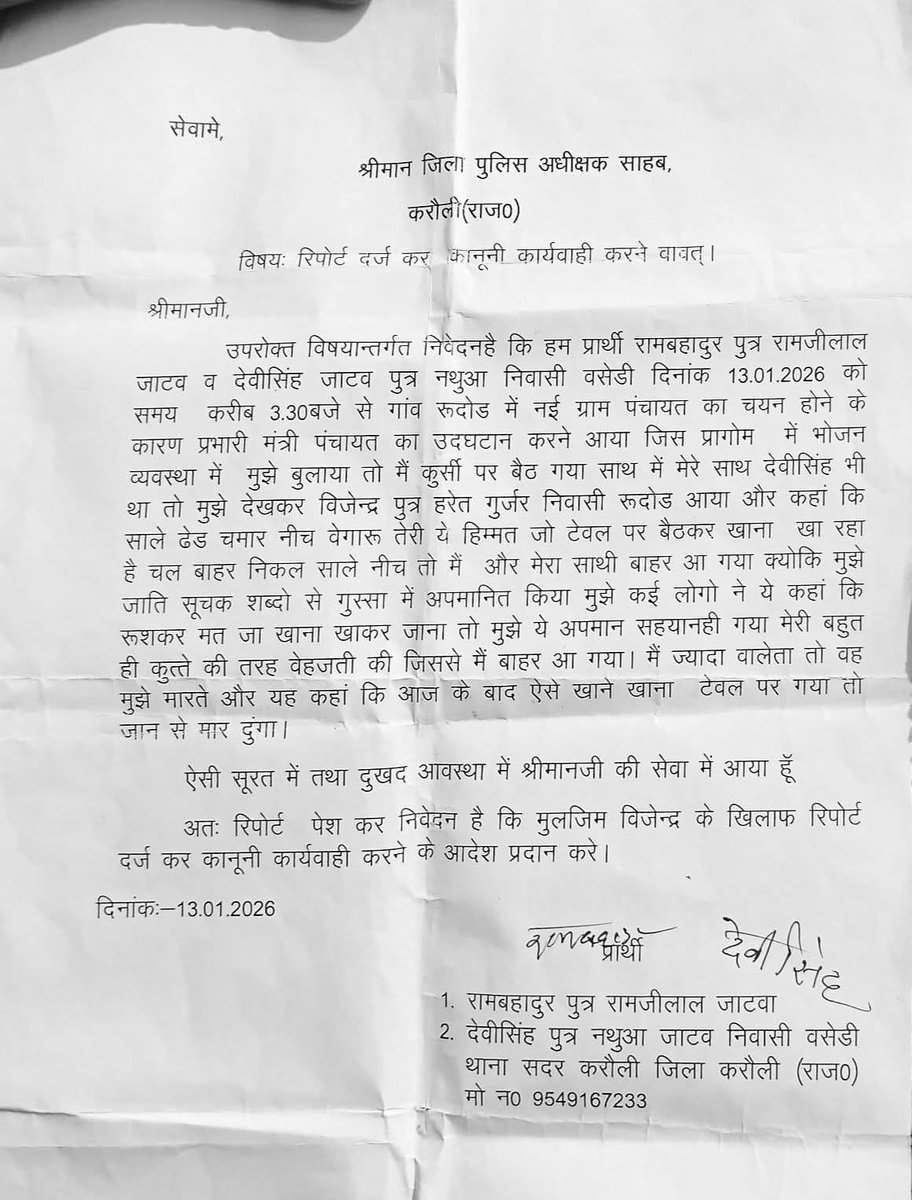 सेवामे,
श्रीमान जिला पुलिस अधीक्षक साहब,
करौली(राज0)
विषयः रिपोर्ट दर्ज कर कानूनी कार्यवाही करने वावत्।
श्रीमानजी,
उपरोक्त विषयान्तर्गत निवेदनहै कि हम प्रार्थी रामबहादुर पुत्र रामजीलाल
जाटव व देवीसिंह जाटव पुत्र नथुआ निवासी वसेडी दिनांक 13.01.2026 को
समय करीब 3.30बजे से गांव रूदोड में नई ग्राम पंचायत का चयन होने के
कारण प्रभारी मंत्री पंचायत का उदघटान करने आया जिस प्रागोम में भोजन
व्यवस्था में मुझे बुलाया तो मैं कुर्सी पर बैठ गया साथ में मेरे साथ देवीसिंह भी
था तो मुझे देखकर विजेन्द्र पुत्र हरेत गुर्जर निवासी रूदोड आया और कहां कि
साले ढेड चमार नीच वेगारू तेरी ये हिम्मत जो टेवल पर बैठकर खाना खा रहा
है चल बाहर निकल साले नीच तो मैं और मेरा साथी बाहर आ गया क्योकि मुझे
जाति सूचक शब्दो से गुस्सा में अपमानित किया मुझे कई लोगो ने ये कहां कि
रूशकर मत जा खाना खाकर जाना तो मुझे ये अपमान सहयानही गया मेरी बहुत
ही कुत्ते की तरह वेहजती की जिससे मैं बाहर आ गया। मैं ज्यादा वालेता तो वह
मुझे मारते और यह कहां कि आज के बाद ऐसे खाने खाना टेवल पर गया तो
जान से मार दुंगा।
ऐसी सूरत में तथा दुखद आवस्था में श्रीमानजी की सेवा में आया हूॅ
अतः रिपोर्ट पेश कर निवेदन है कि मुलजिम विजेन्द्र के खिलाफ रिपोर्ट
दर्ज कर कानूनी कार्यवाही करने के आदेश प्रदान करे।
दिनांकः–13.01.2026
प्रार्थी देवी सिंह
1. रामबहादुर पुत्र रामजीलाल जाटवा
2. देवीसिंह पुत्र नथुआ जाटव निवासी वसेडी
थाना सदर करौली जिला करौली (राज0)
मो न0 9549167233